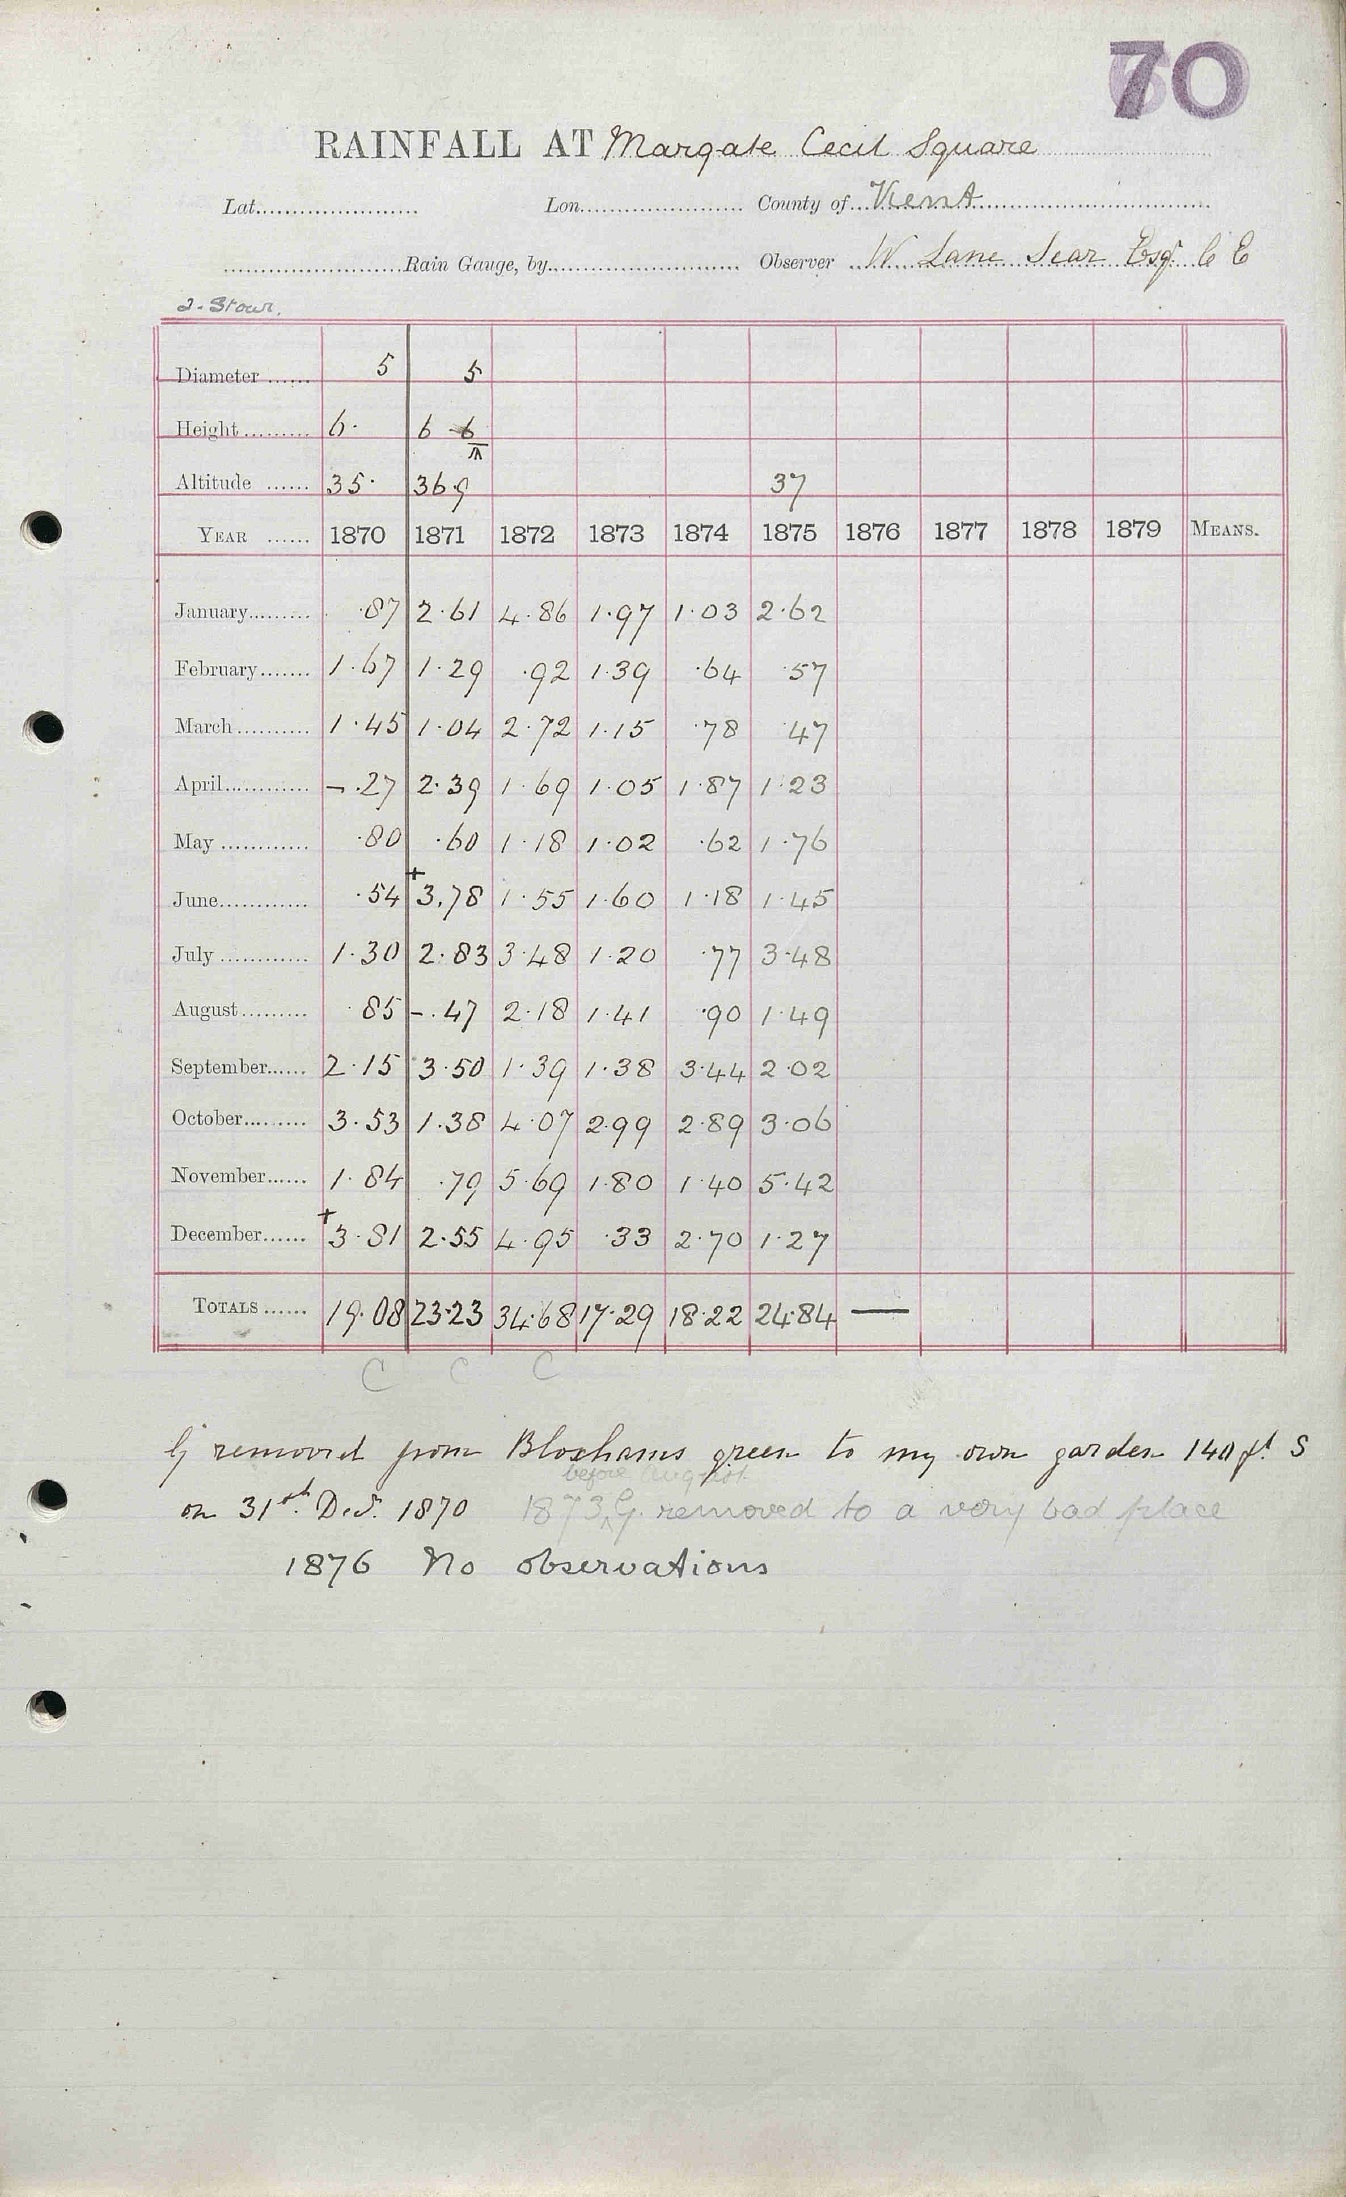 70
RAINFALL AT Margate Cecil Square
Lat...................... Lon....................... County of...Kent
........................Rain Gauge, by.......................... Observer ..W Lane Sear Esqr C E
2-Stour.
Diameter ...... 5 5
Height ......... 6. 6 6
Altitude ...... 35. 36.9 37
YEAR ...... 1870 1871 1872 1873 1874 1875 1876 1877 1878 1879 MEANS.
January......... .87 2.61 4.86 1.97 1.03 2.62
February....... 1.67 1.29 .92 1.39 .64 .57
March.......... 1.45 1.04 2.72 1.15 .78 .47
April............ – .27 2.39 1.69 1.05 1.87 1.23
May ............ .80 .60 1.18 1.02 .62 1.76
June............ .54 +3.78 1.55 1.60 1.18 1.45
July ............ 1.30 2.83 3.48 1.20 .77 3.48
August......... .85 – .47 2.18 1.41 .90 1.49
September...... 2.15 3.50 1.39 1.38 3.44 2.02
October......... 3.53 1.38 4.07 2.99 2.89 3.06
November...... 1.84 .79 5.69 1.80 1.40 5.42
December...... +3.81 2.55 4.95 .33 2.70 1.27
TOTALS ...... 19.08 23.23 34.68 17.29 18.22 24.84 —
C C C
G removed from Bloxhams green to my own garden 140 ft S
before August
on 31st Decr. 1870 1873 G. removed to a very bad place
1876 No observations